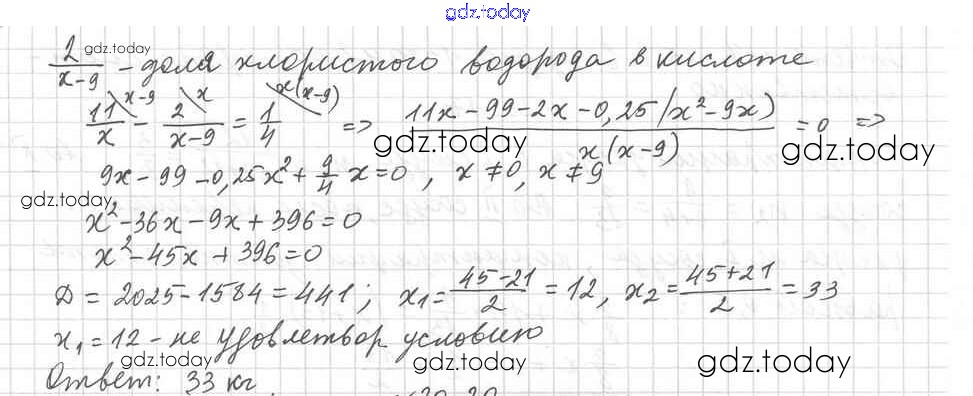 gdz.today
2/(x-9) - доля хлористого водорода в кислоте
gdz.today
11/x^(x-9) - 2/(x-9)^x = 1/4^(x(x-9)) => (11x - 99 - 2x - 0,25(x² - 9x))/(x(x-9)) = 0 =>
gdz.today gdz.today
9x - 99 - 0,25x² + 9/4 x = 0 , x ≠ 0, x ≠ 9
gdz.today
x² - 36x - 9x + 396 = 0
x² - 45x + 396 = 0
D = 2025 - 1584 = 441; x₁ = (45-21)/2 = 12, x₂ = (45+21)/2 = 33
x₁ = 12 - не удовлетвор условию
gdz.today gdz.today gdz.today
Ответ: 33 кг.